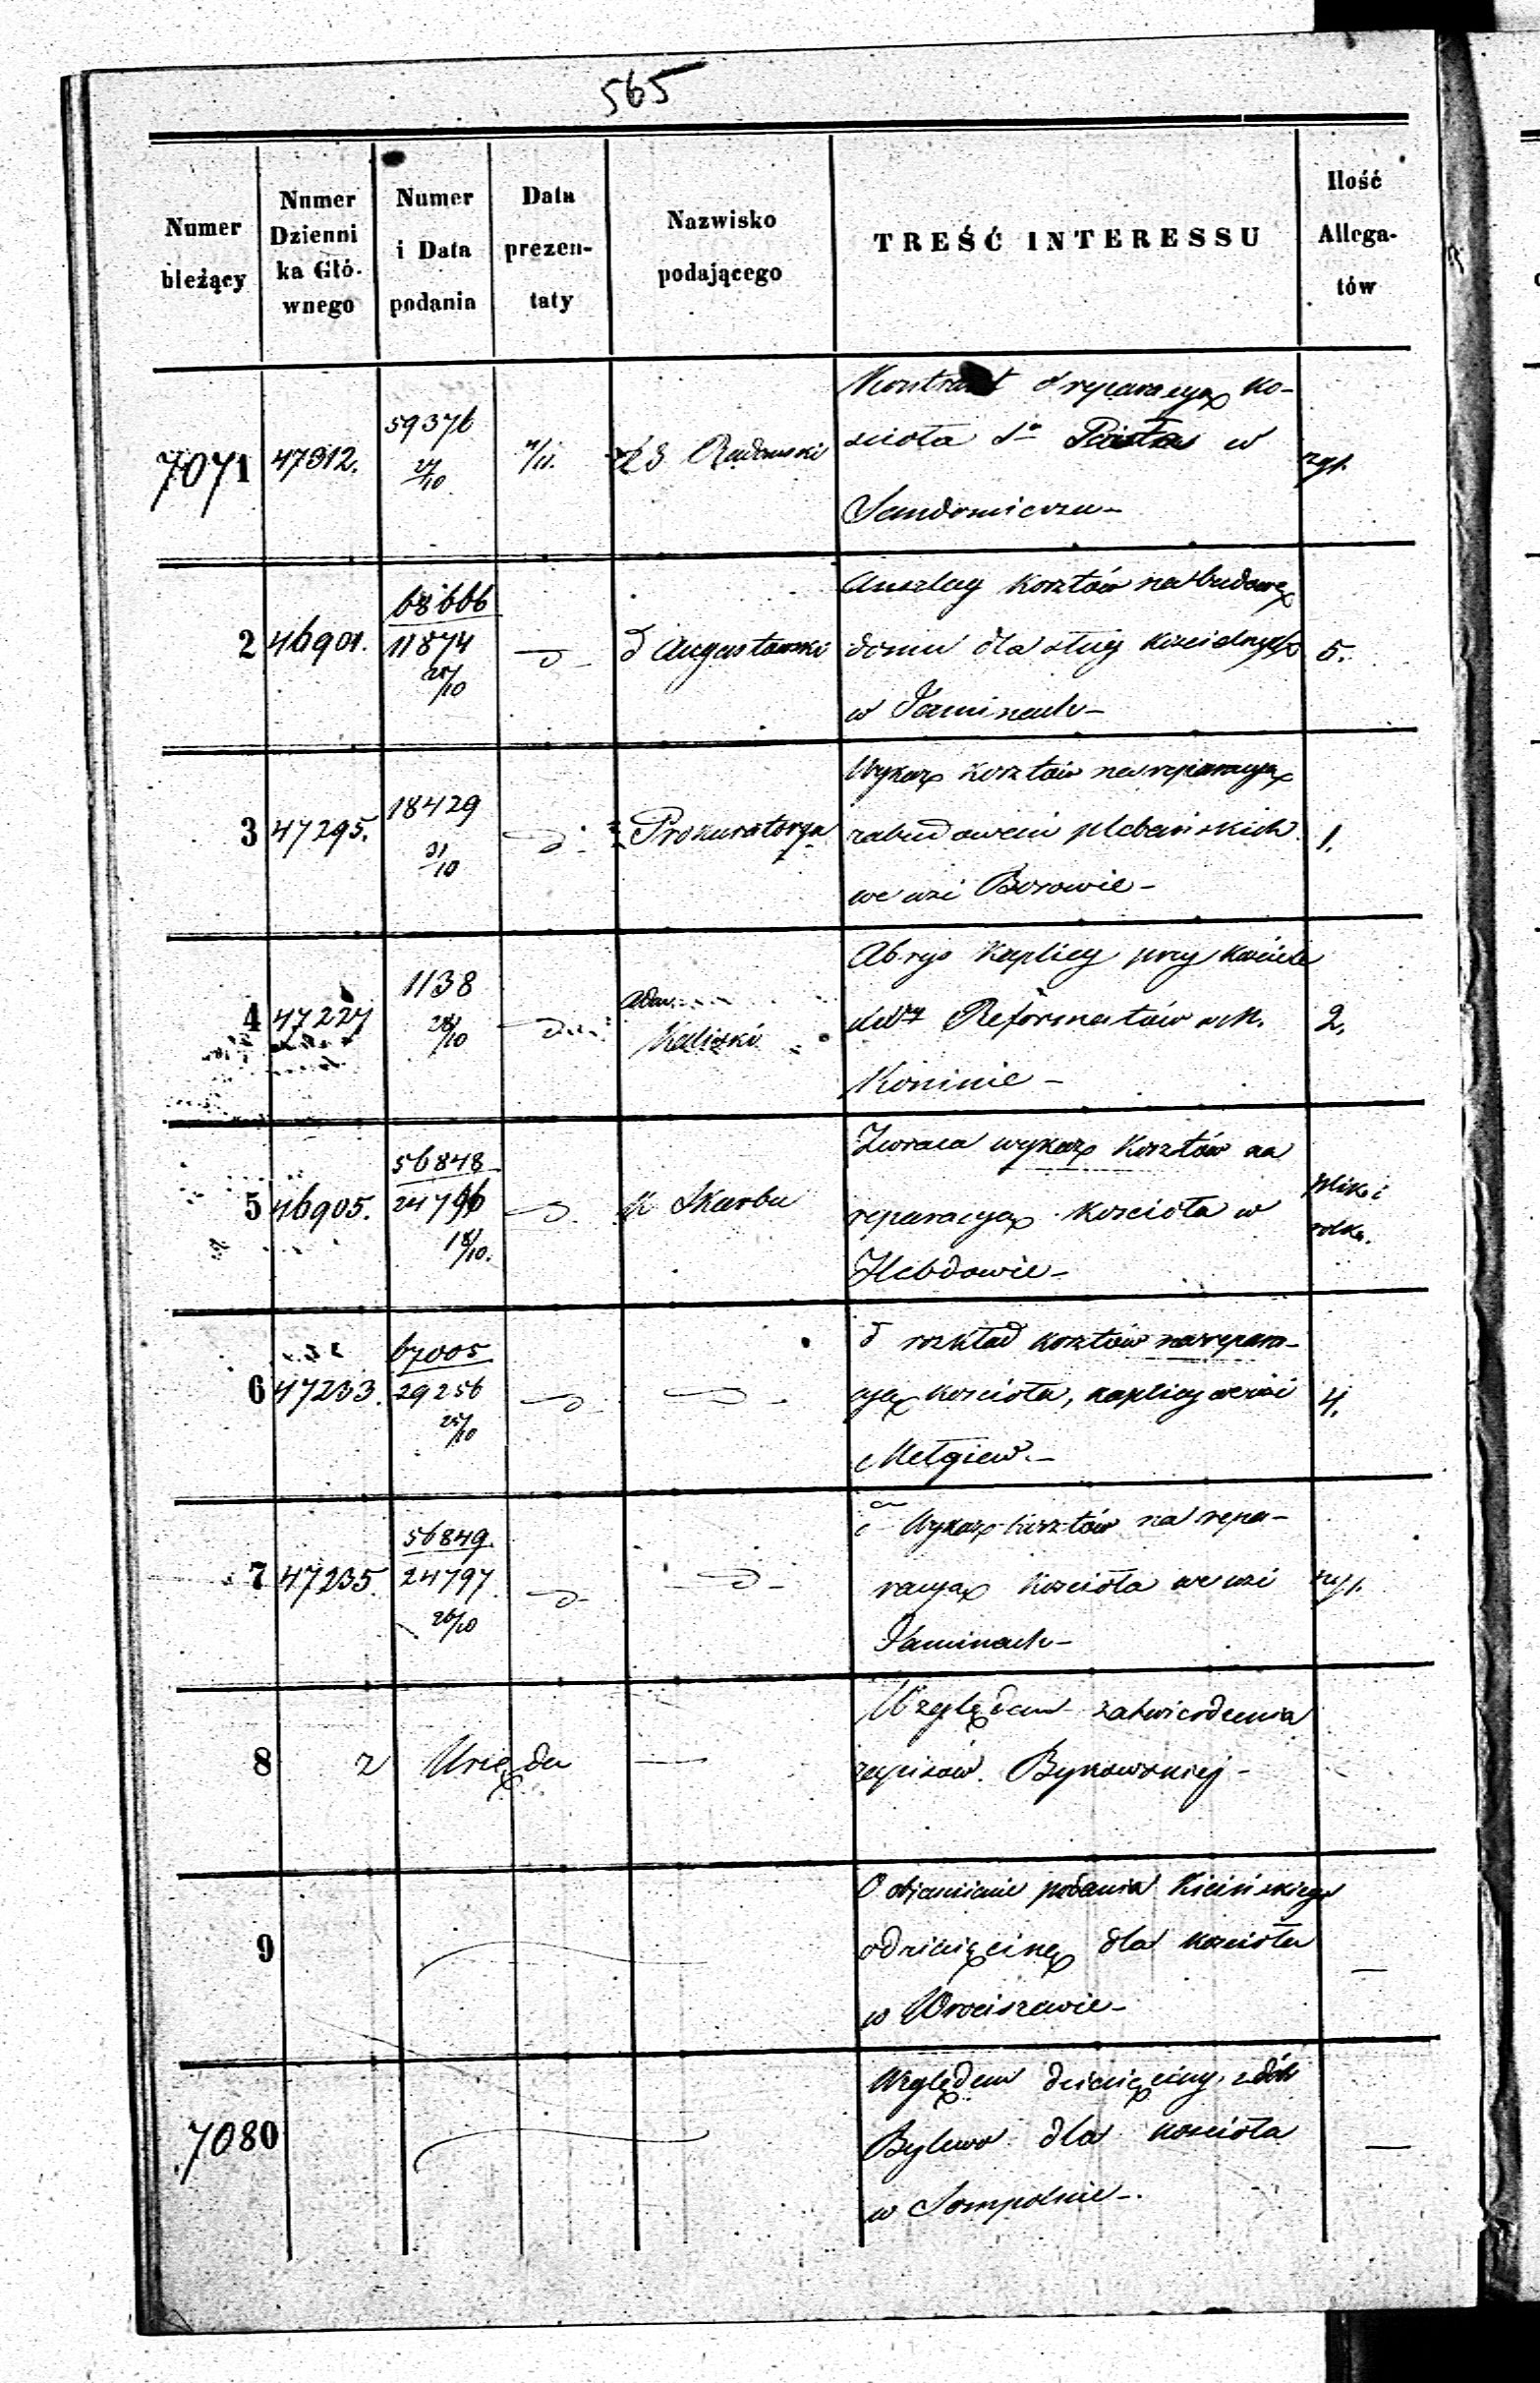 565
Numer bieżący
Numer Dzienni ka Głó- wnego
Numer i Data podania
Data prezen- taty
Nazwisko podającego
TREŚĆ INTERESSU
Ilość Allega- tów
7071 47312. 59376 27/10 4/11. Radomski
Kontrakt o reparacyą ko-
scioła Sº Piotra w
Sandomierzu-
2 46901. 68666 11874 25/10 d Augustowski 5.
Anszlag kosztów na budowę
domu dla sług kościelnych
w Jaminach-
3 47295. 18429 31/10 d Prokuratorya 1.
Wykaz kosztów na reparacyą
zabudowań plebańskich
we wsi Borowie-
4 47227 1138 28/10 Kaliski 2.
Abrys kaplicy przy kościele
Reformatów w M.
Koninie-
5 46905. 56848 24796 18/10. K Skarbu
Zwraca wykaz kosztów na
reparacyą kościoła w
Hebdowie-
6 47233. 67005 29256 25/10 d d 4.
d rozkład kosztów na repara-
cyą kościoła, kaplicy we wsi
Mełgiew.-
7 47235. 56849. 24797 26/10 d d
Wykaz kosztów na repa-
racyą kościoła we wsi
Jaminach-
8 z Urzędu —
Względem zatwierdzenia
zapisów Bykowskiej-
9
O objaśnienie podania Kicińskiego
o dziesięcinę dla kościoła
w Wrociszewie- —
7080
Względem dziesięciny z dóbr
Bylewo dla kościoła
w Sompolnie-. —